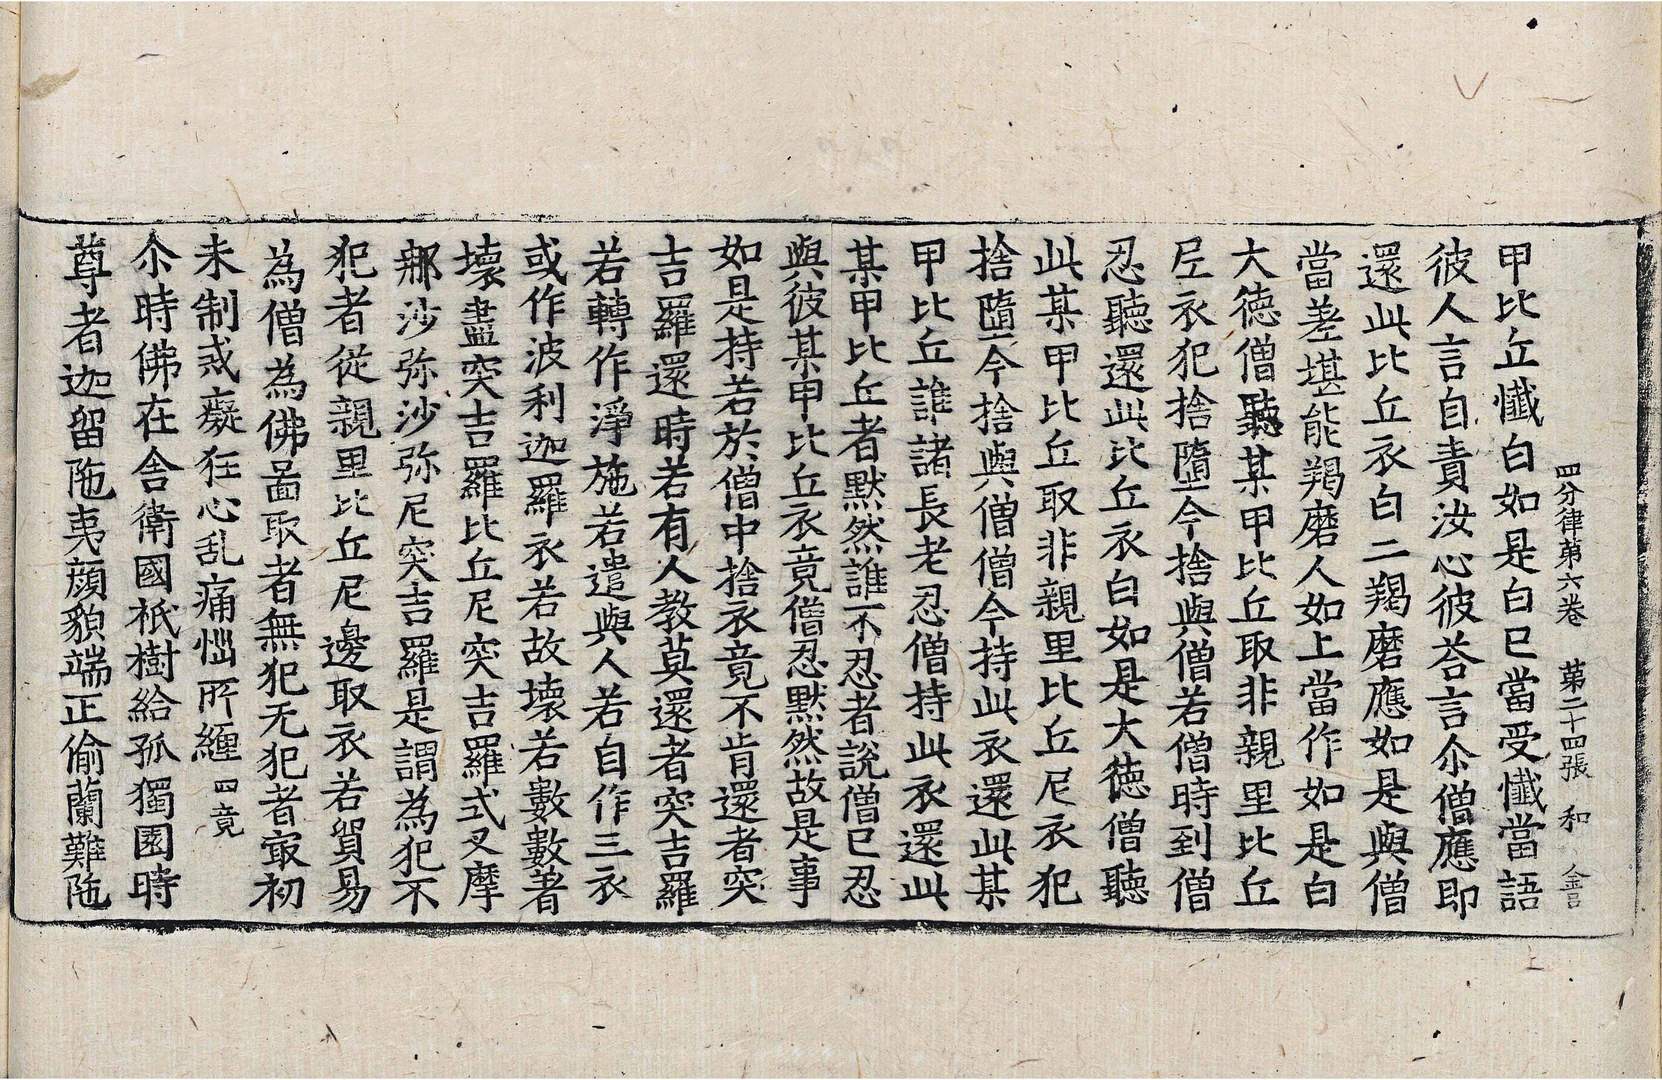 四分律第六卷　第二十四張　和
甲比丘懺白如是白已當受懺當語
彼人言自責汝心彼荅言尒僧應即
還此比丘衣白二羯磨應如是與僧
當差堪能羯磨人如上當作如是白
大德僧聽某甲比丘取非親里比丘
尼衣犯捨墮今捨與僧若僧時到僧
忍聽還此比丘衣白如是大德僧聽
此某甲比丘取非親里比丘尼衣犯
捨墮今捨與僧僧今持此衣還此某
甲比丘誰諸長老忍僧持此衣還此
某甲比丘者默然誰不忍者說僧已忍
與彼某甲比丘衣竟僧忍默然故是事
如是持若於僧中捨衣竟不肯還者突
吉羅還時若有人教莫還者突吉羅
若轉作淨施若遣與人若自作三衣
或作波利迦羅衣若故壞若數數著
壞盡突吉羅比丘尼突吉羅式叉摩
那沙弥沙弥尼突吉羅是謂為犯不
犯者從親里比丘尼邊取衣若貿易
為僧為佛啚取者無犯无犯者㝡初
未制戒癡狂心乱痛惱所纏四竟
尒時佛在舍衛國祇樹給孤獨園時
尊者迦留陁夷顔貌端正偷蘭難陁